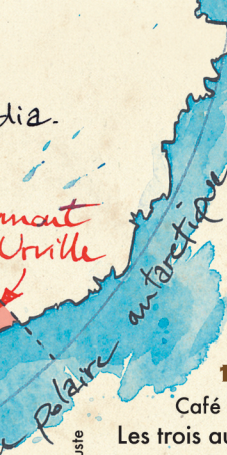 dia.
mont
Urville
polaire antarctique
Café
Les trois au
uste